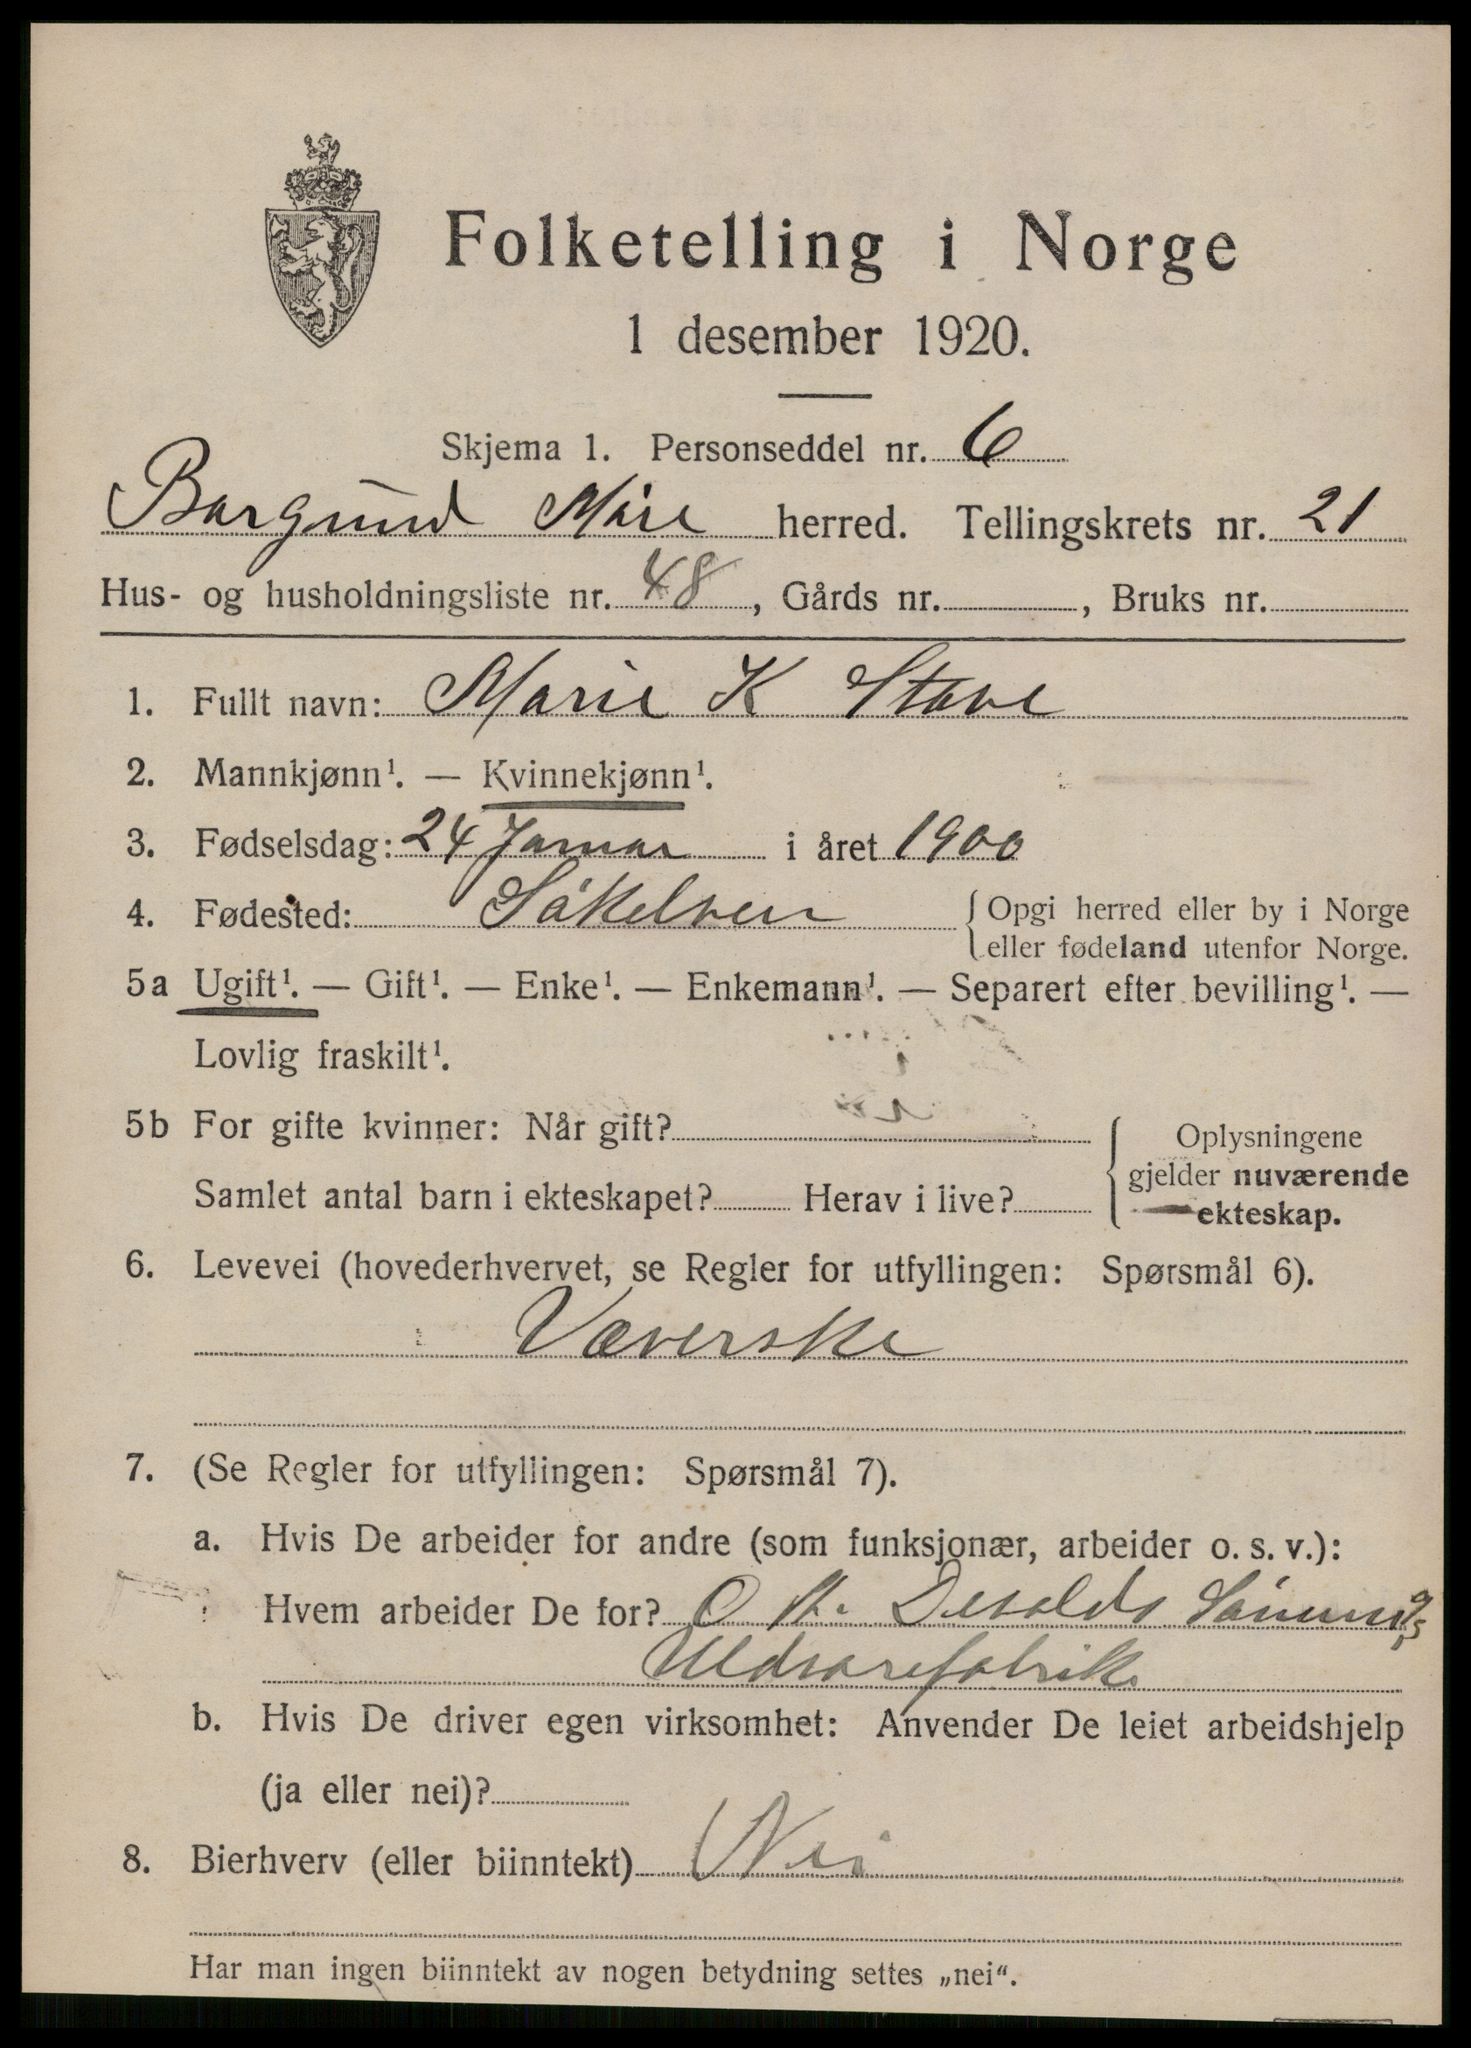 Folketelling i Norge
1 desember 1920.
Skjema 1. Personseddel nr. 6
Borgund Møre herred. Tellingskrets nr. 21
Hus- og husholdningsliste nr. 48, Gårds nr. , Bruks nr.
1. Fullt navn: Marie K Stave
2. Mannkjønn¹. — Kvinnekjønn¹.
3. Fødselsdag: 24 Januar i året 1900
4. Fødested: Søkelven { Opgi herred eller by i Norge
eller fødeland utenfor Norge.
5a Ugift¹. — Gift¹. — Enke¹. — Enkemann¹. — Separert efter bevilling¹. —
Lovlig fraskilt¹.
5b For gifte kvinner: Når gift?
Samlet antal barn i ekteskapet? Herav i live?
{ Oplysningene
gjelder nuværende
ekteskap.
6. Levevei (hovederhvervet, se Regler for utfyllingen: Spørsmål 6).
Væverske
7. (Se Regler for utfyllingen: Spørsmål 7).
a. Hvis De arbeider for andre (som funksjonær, arbeider o. s. v.):
Hvem arbeider De for? O A. Devolds Sønner
Uldvarefabrik
b. Hvis De driver egen virksomhet: Anvender De leiet arbeidshjelp
(ja eller nei)?
8. Bierhverv (eller biinntekt) Nei
Har man ingen biinntekt av nogen betydning settes „nei“.